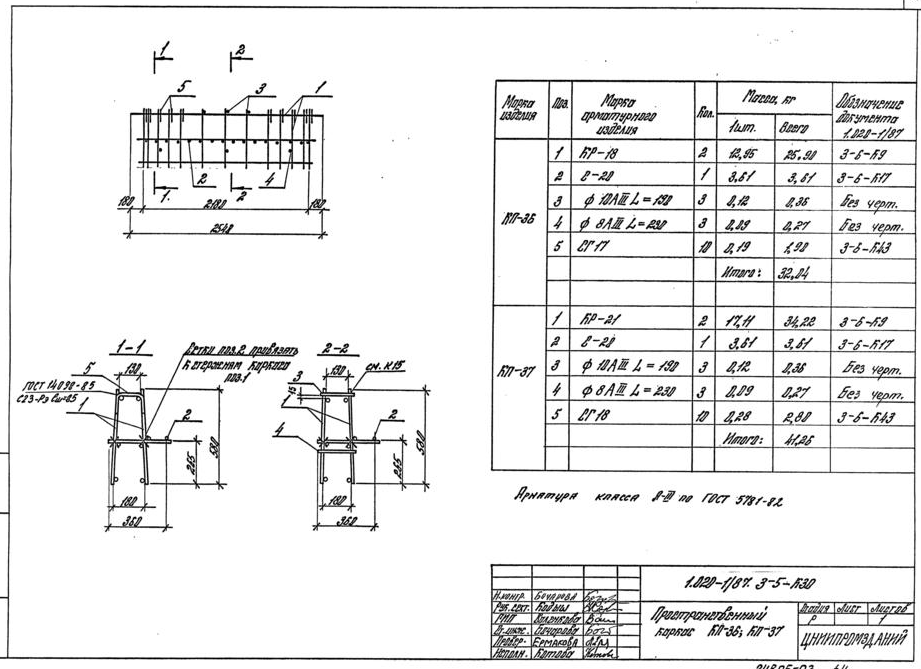 1 2
5 3 1
1 2 2 4
180 2180 180
2540
1-1
130
Сетки поз.2 привязать
к стержням каркаса
поз.1
5
ГОСТ 14098-85
1
2
265
580
180
360
2-2
130
см. К15
3
15
1
4
2
265
580
180
360
Марка изделия Поз. Марка арматурного изделия Кол. Масса, кг Обозначение документа 1.020-1/87
1шт. Всего
КП-36
1 КР-18 2 12,95 25,90 3-6-К9
2 С-20 1 3,61 3,61 3-6-К17
3 ф 10АIII L=190 3 0,12 0,36 Без черт.
4 ф 8АIII L=230 3 0,09 0,27 Без черт.
5 СГ17 10 0,19 1,90 3-6-К43
Итого: 32,04
КП-37
1 КР-21 2 17,11 34,22 3-6-К9
2 С-20 1 3,61 3,61 3-6-К17
3 ф 10АIII L=190 3 0,12 0,36 Без черт.
4 ф 8АIII L=230 3 0,09 0,27 Без черт.
5 СГ18 10 0,28 2,80 3-6-К43
Итого: 41,26
Арматура класса А-III по ГОСТ 5781-82
1.020-1/87. 3-5-К30
Н.контр. Бочарова
Рук. сект.
ГИП
Ст. инж. Бочарова
Провер. Ермакова
Исполн. Котова
Пространственный
каркас КП-36; КП-37
Стадия Лист Листов
Р 1
ЦНИИПРОМЗДАНИЙ